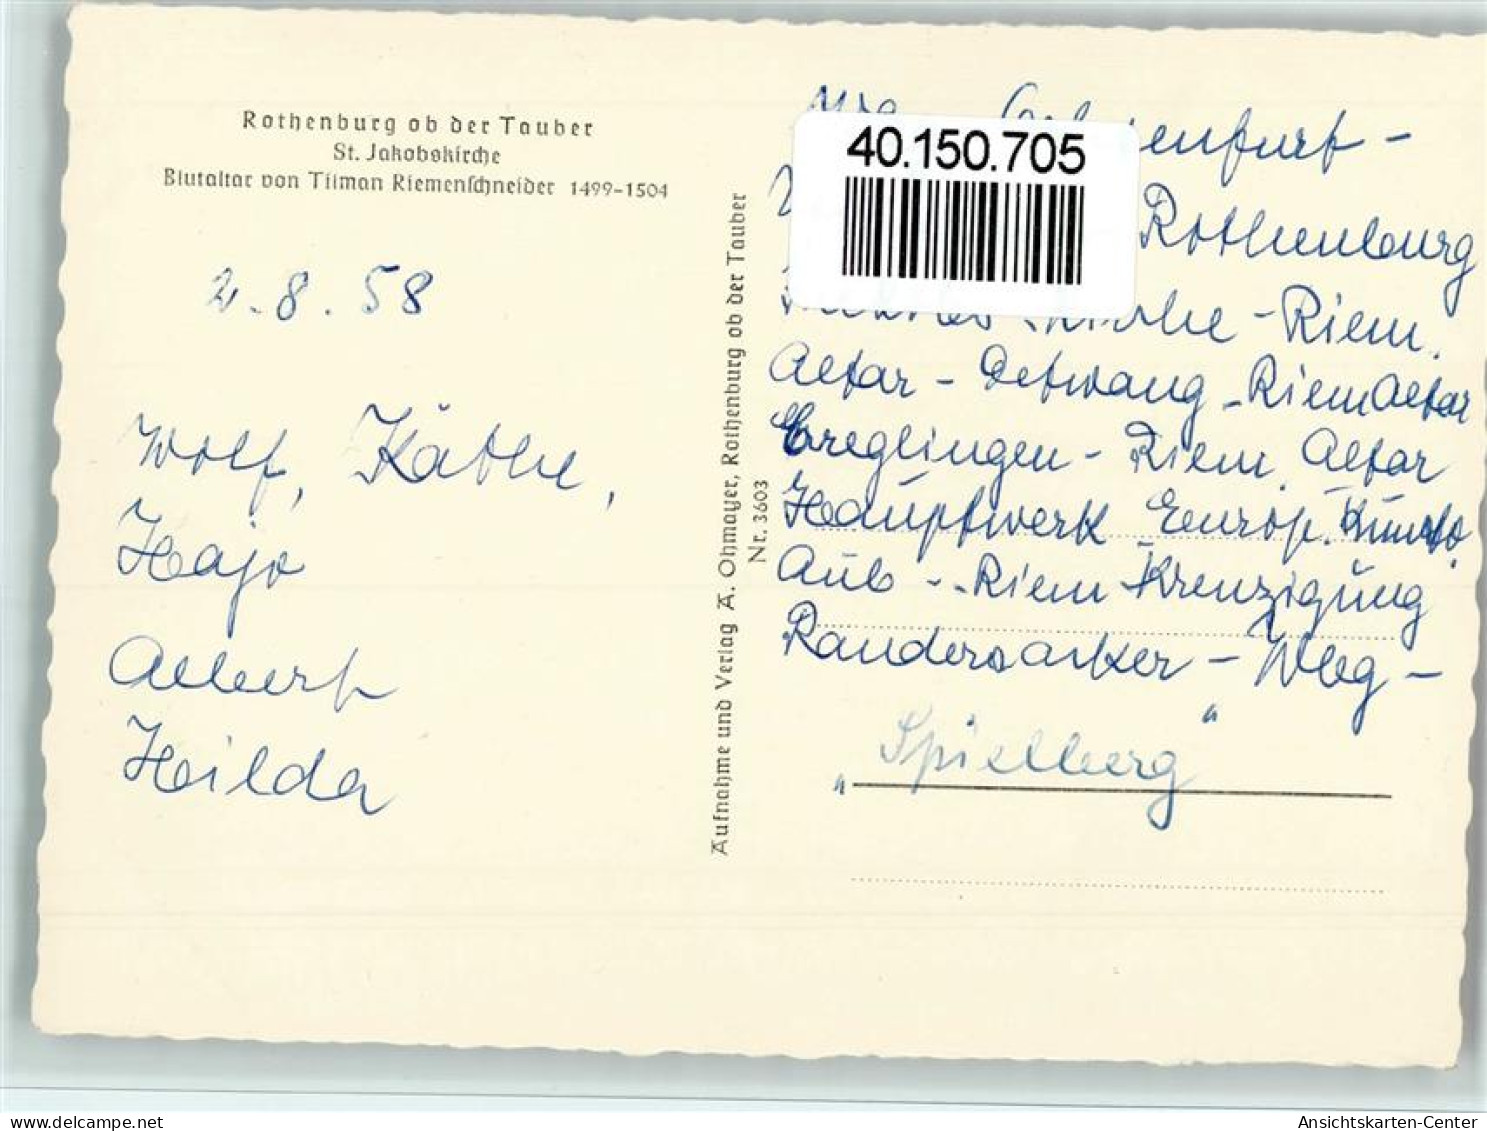 Rothenburg ob der Tauber
St. Jakobskirche
Blutaltar von Tilman Riemenschneider 1499-1504
2.8.58
Wolf, Käthe,
Hajo
Albert
Hilda
Aufnahme und Verlag A. Ohmayer, Rothenburg ob der Tauber
Nr. 3603
40.150.705
enfurt -
Rothenburg
Kirche - Riem.
Altar - Detwang - Riem Altar
Creglingen - Riem. Altar
Hauptwerk Europ. Kunst.
Aub - Riem Kreuzigung
Randersacker - Wbg -
"Spielberg"
delcampe.net
Ansichtskarten-Center